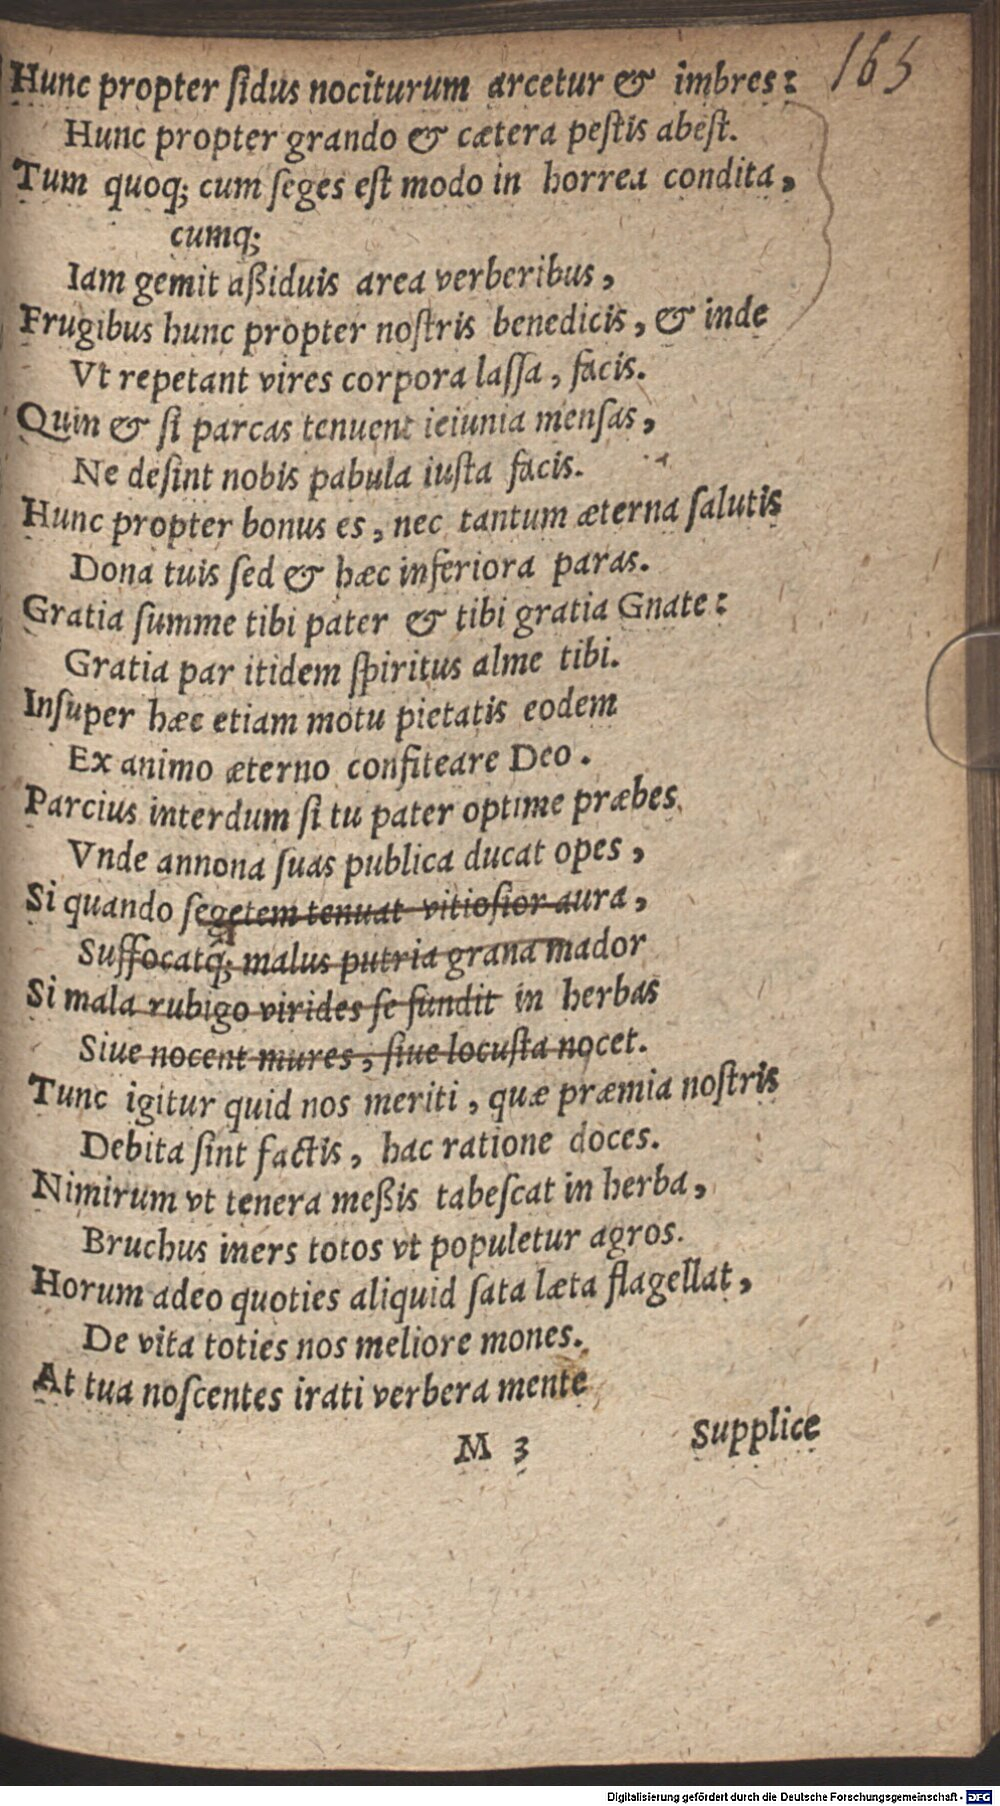 165
Hunc propter ſidus nociturum arcetur & imbres:
Hunc propter grando & cætera peſtis abeſt.
Tum quoq; cum ſeges eſt modo in horrea condita,
cumq;
Iam gemit aßiduis area verberibus,
Frugibus hunc propter noſtris benedicis, & inde
Vt repetant vires corpora laſſa, facis.
Quin & ſi parcas tenuent ieiunia menſas,
Ne deſint nobis pabula iuſta facis.
Hunc propter bonus es, nec tantum æterna ſalutis
Dona tuis ſed & hæc inferiora paras.
Gratia ſumme tibi pater & tibi gratia Gnate:
Gratia par itidem ſpiritus alme tibi.
Inſuper hæc etiam motu pietatis eodem
Ex animo æterno confiteare Deo.
Parcius interdum ſi tu pater optime præbes,
Vnde annona ſuas publica ducat opes,
Si quando ſegetem tenuat vitioſior aura,
Suffocatq; malus putria grana mador
Si mala rubigo virides ſe fundit in herbas
Siue nocent mures, ſiue locuſta nocet.
Tunc igitur quid nos meriti, quæ præmia noſtris
Debita ſint factis, hac ratione doces.
Nimirum vt tenera meßis tabeſcat in herba,
Bruchus iners totos vt populetur agros.
Horum adeo quoties aliquid ſata læta flagellat,
De vita toties nos meliore mones.
At tua noſcentes irati verbera mente
M 3
Supplice
Digitalisierung gefördert durch die Deutsche Forschungsgemeinschaft - DFG